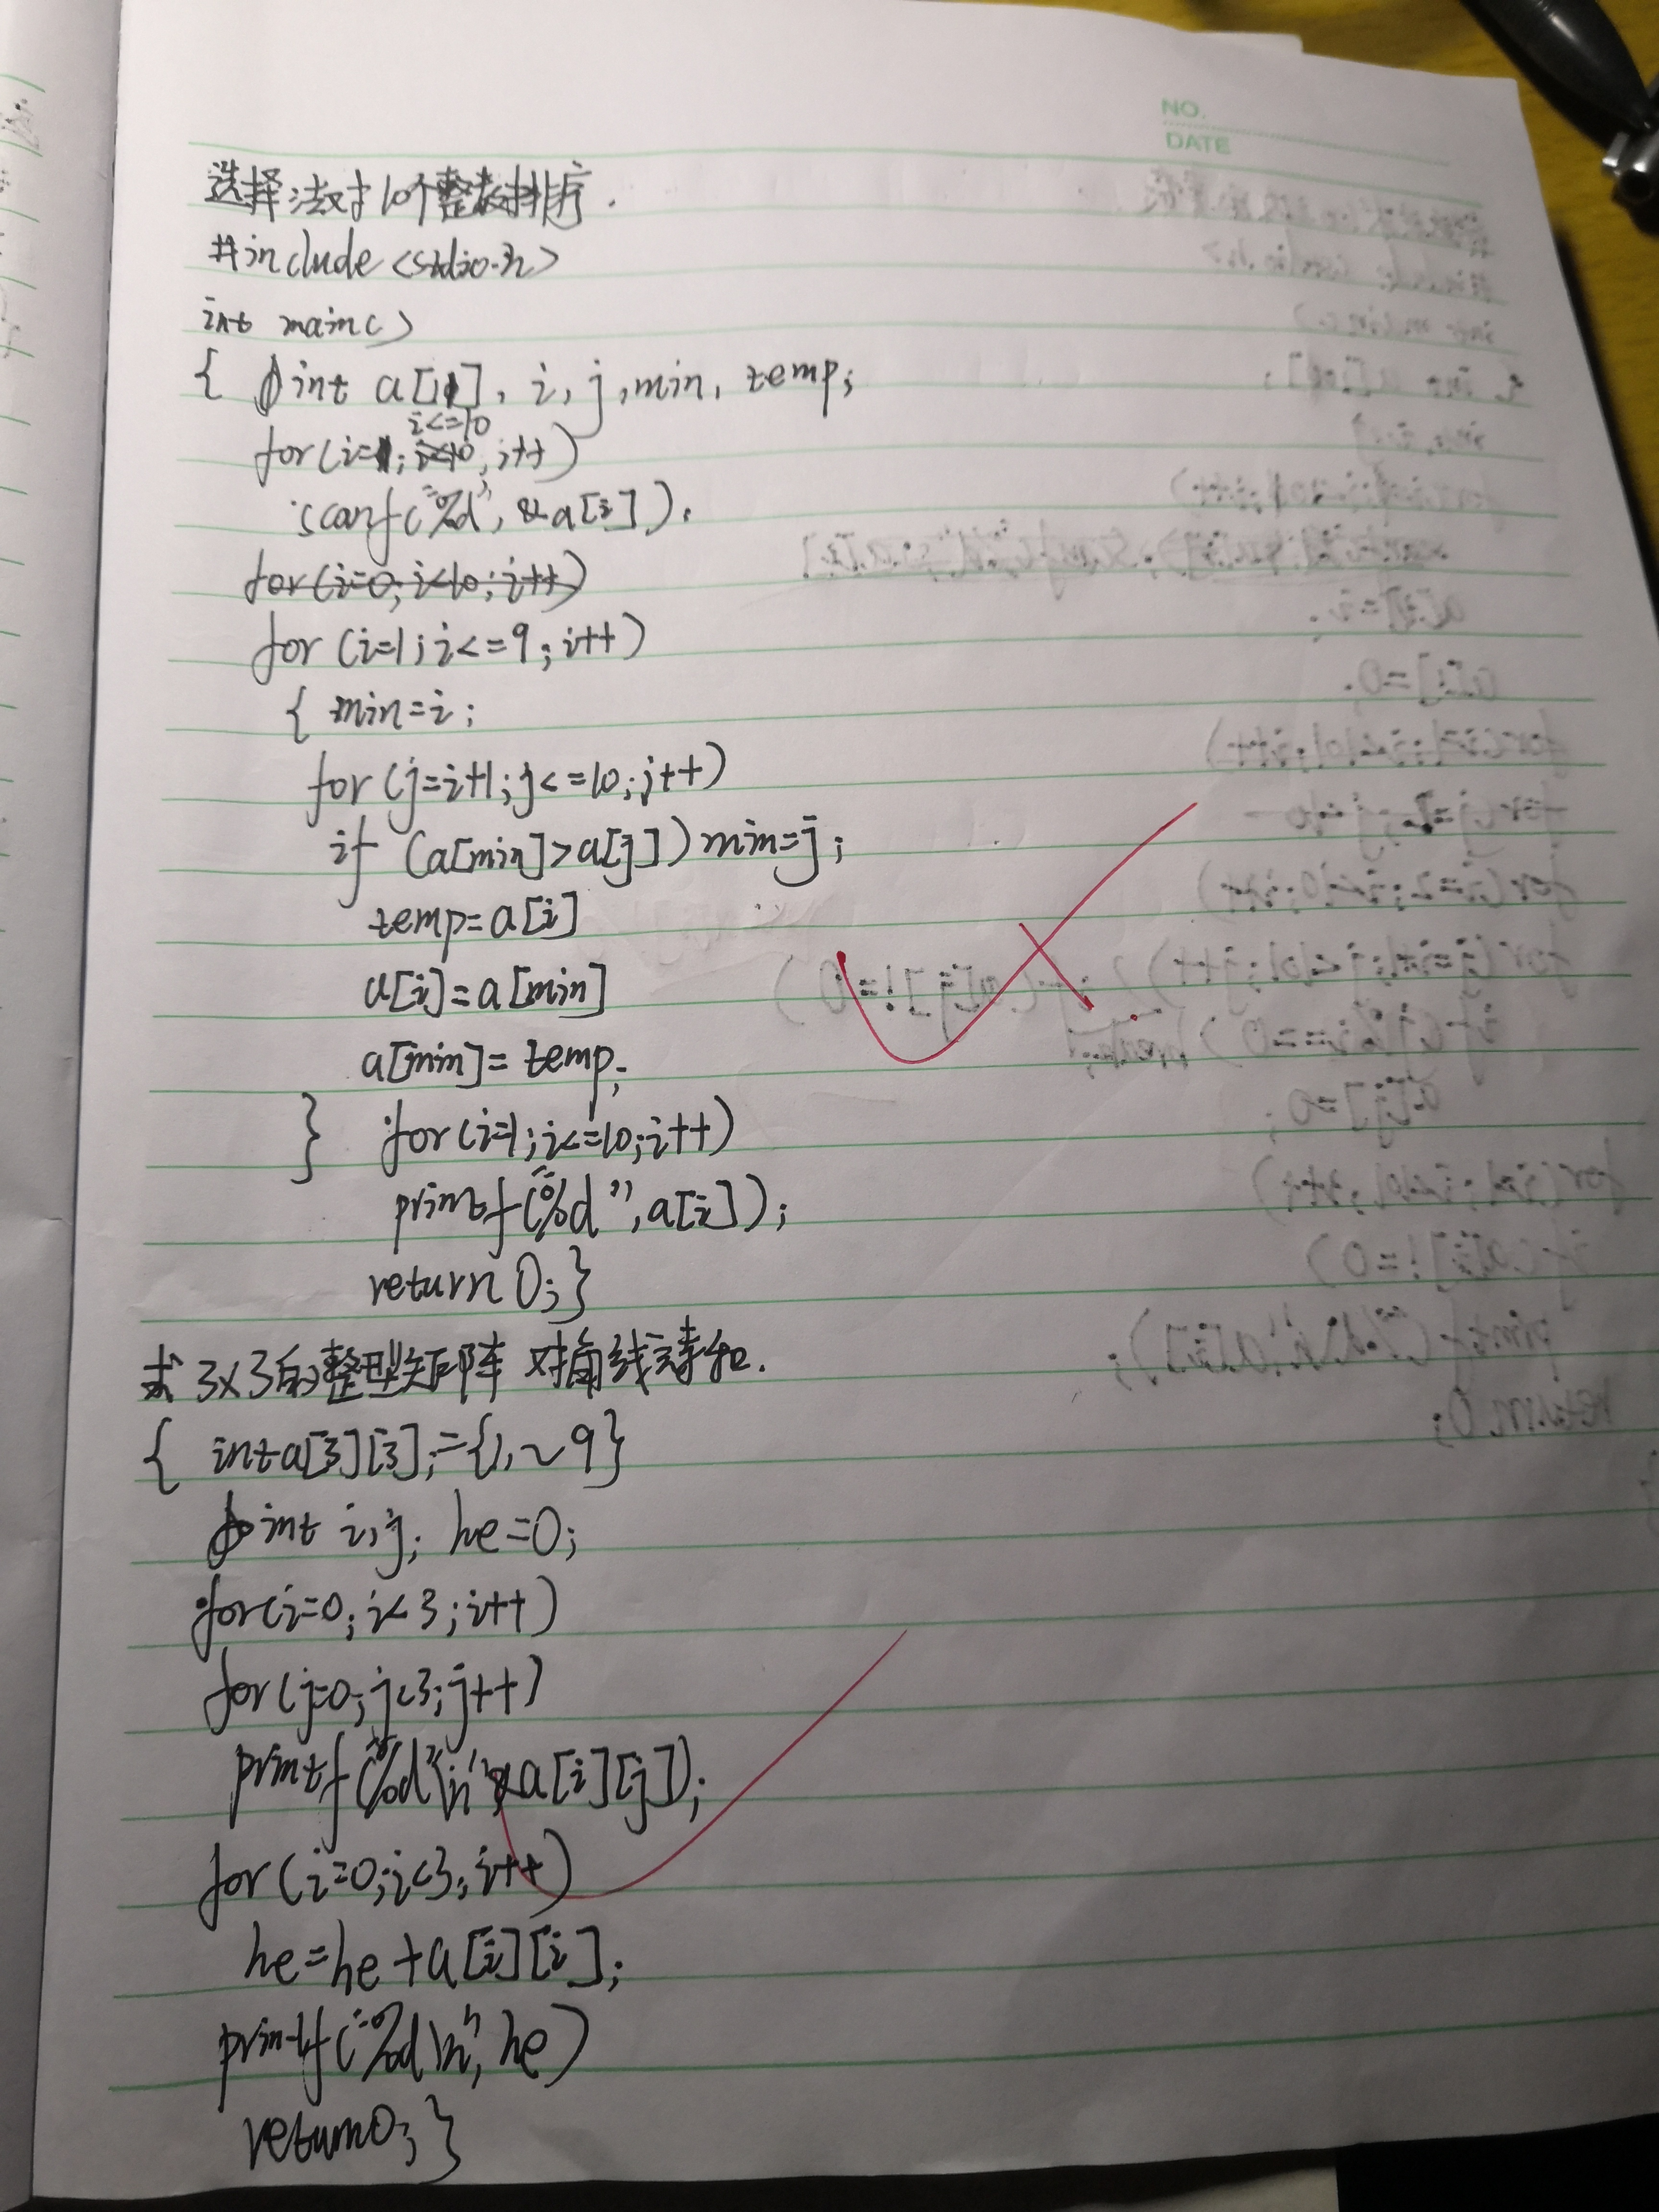 NO.
DATE
选择法对10个整数排序.
#include <stdio.h>
int main()
{ int a[11], i, j, min, temp;
i<=10
for(i=1; i<10; i++)
scanf("%d", &a[i]).
for(i=0; i<10; i++)
for (i=1; i<=9; i++)
{ min=i;
for (j=i+1; j<=10; j++)
if (a[min]>a[j]) min=j;
temp=a[i]
a[i]=a[min]
a[min]=temp;
} for(i=1; i<=10; i++)
printf("%d", a[i]);
return 0; }
求3x3的整型矩阵 对角线之和.
{ int a[3][3];={1,~9}
int i,j; he=0;
for(i=0; i<3; i++)
for(j=0; j<3; j++)
printf("%d"\n" a[i][j]);
for(i=0; i<3; i++)
he=he+a[i][i];
printf("%d\n", he)
return0; }